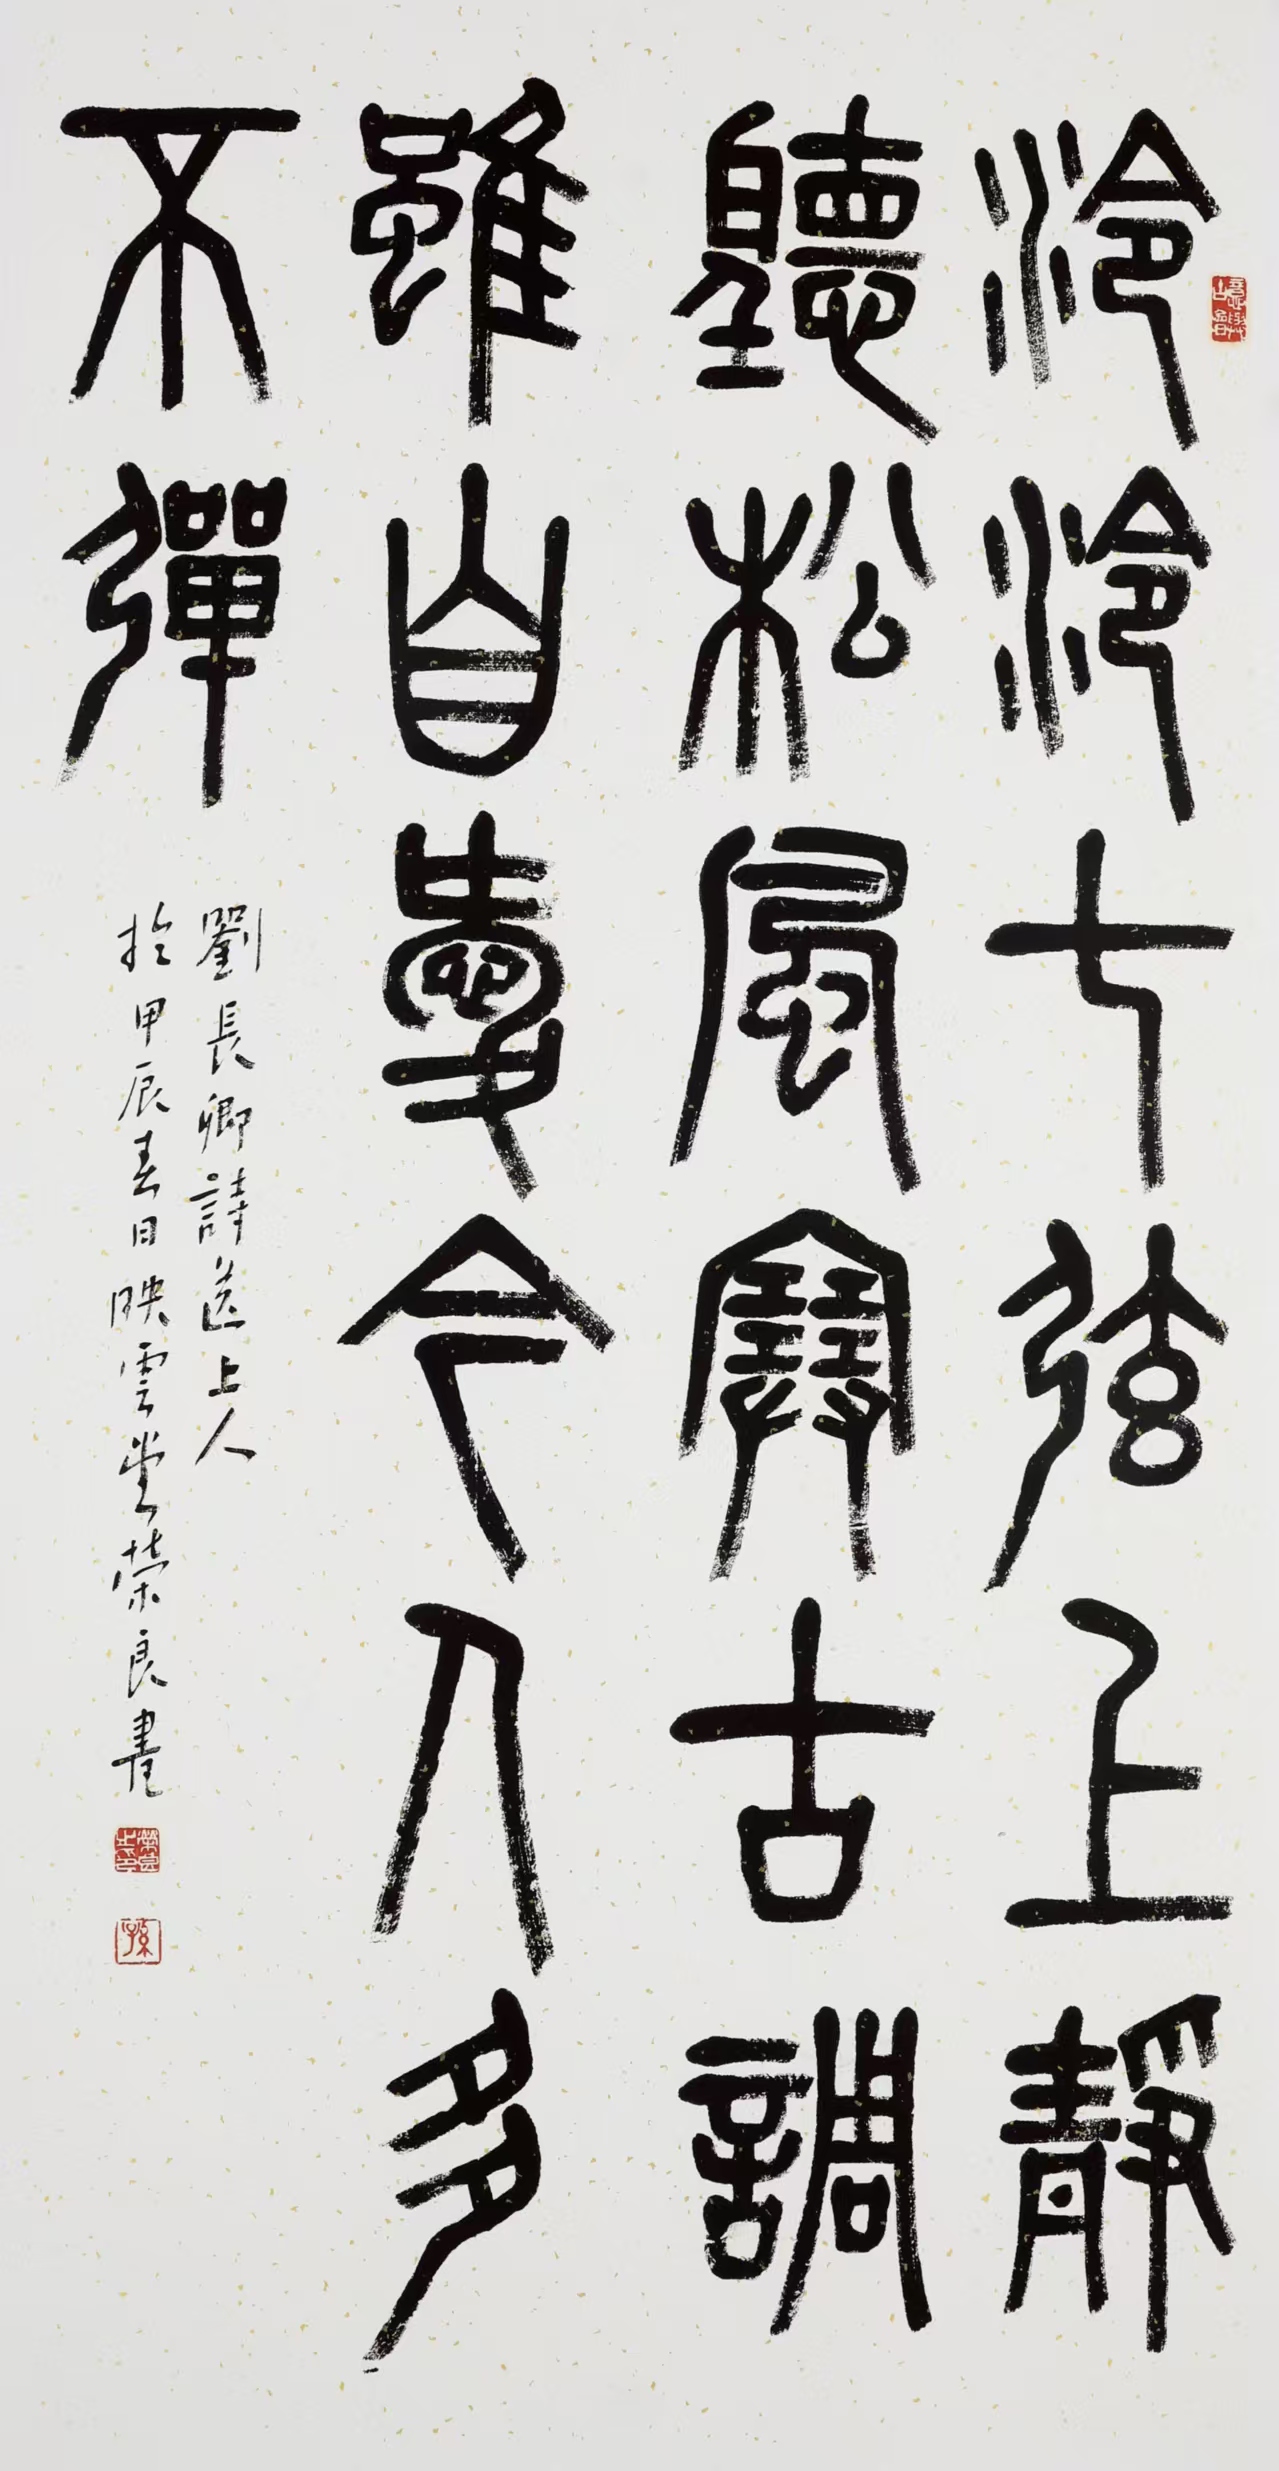 泠泠七弦上靜
聽松風寒古調
雖自愛今人多
不彈
劉長卿詩送上人
於甲辰春日映雲堂榮良書
孫